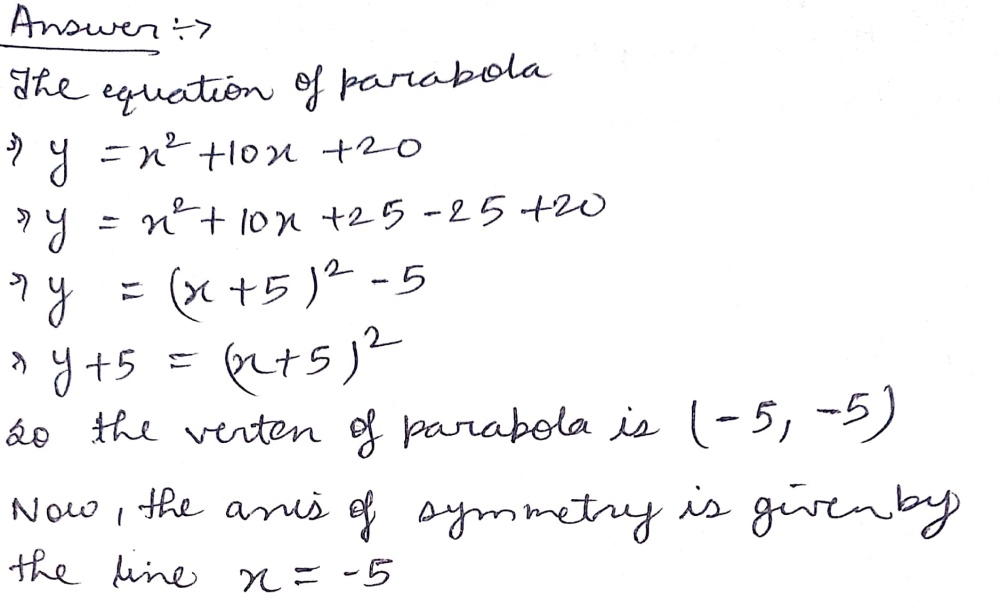 Answer :→
The equation of parabola
⇒ y = x² + 10x + 20
⇒ y = x² + 10x + 25 - 25 + 20
⇒ y = (x + 5)² - 5
⇒ y + 5 = (x + 5)²
so the vertex of parabola is (-5, -5)
Now, the axis of symmetry is given by
the line x = -5